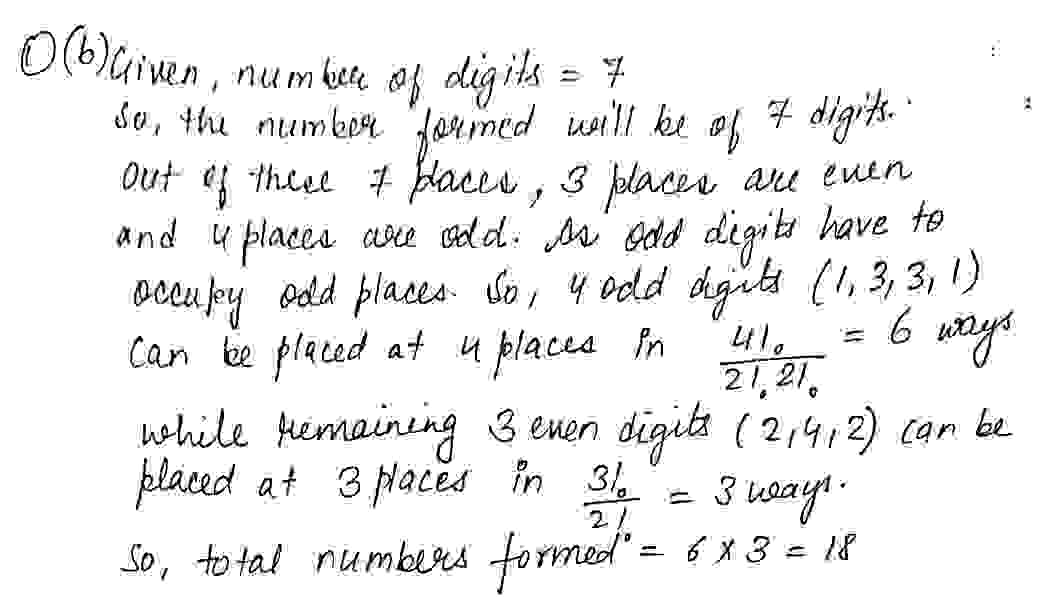 ① (b) Given, number of digits = 7
So, the number formed will be of 7 digits.
Out of these 7 places, 3 places are even
and 4 places are odd. As odd digits have to
occupy odd places. So, 4 odd digits (1, 3, 3, 1)
Can be placed at 4 places in 4!/2! 2! = 6 ways
while remaining 3 even digits (2, 4, 2) can be
placed at 3 places in 3!/2! = 3 ways.
So, total numbers formed = 6 x 3 = 18